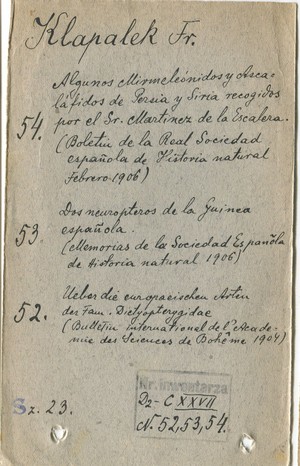 Klapalek Fr.
Algunos Mirmeleónidos y Asca-
láfidos de Persia y Siria recogidos
54. por el Sr. Martinez de la Escalera.
(Boletin de la Real Sociedad
española de Historia natural
Febrero 1906)
Dos neuropteros de la Guinea
53. española.
(Memorias de la Sociedad Española
de Historia natural 1906)
Ueber die europaeischen Arten
52. der Fam. Dictyopterygidae
(Bulletin International de l'Acade-
mie des Sciences de Bohême 1904)
Nr. inwentarza
Sz. 23.
Dz - C XXVII
N. 52, 53, 54.